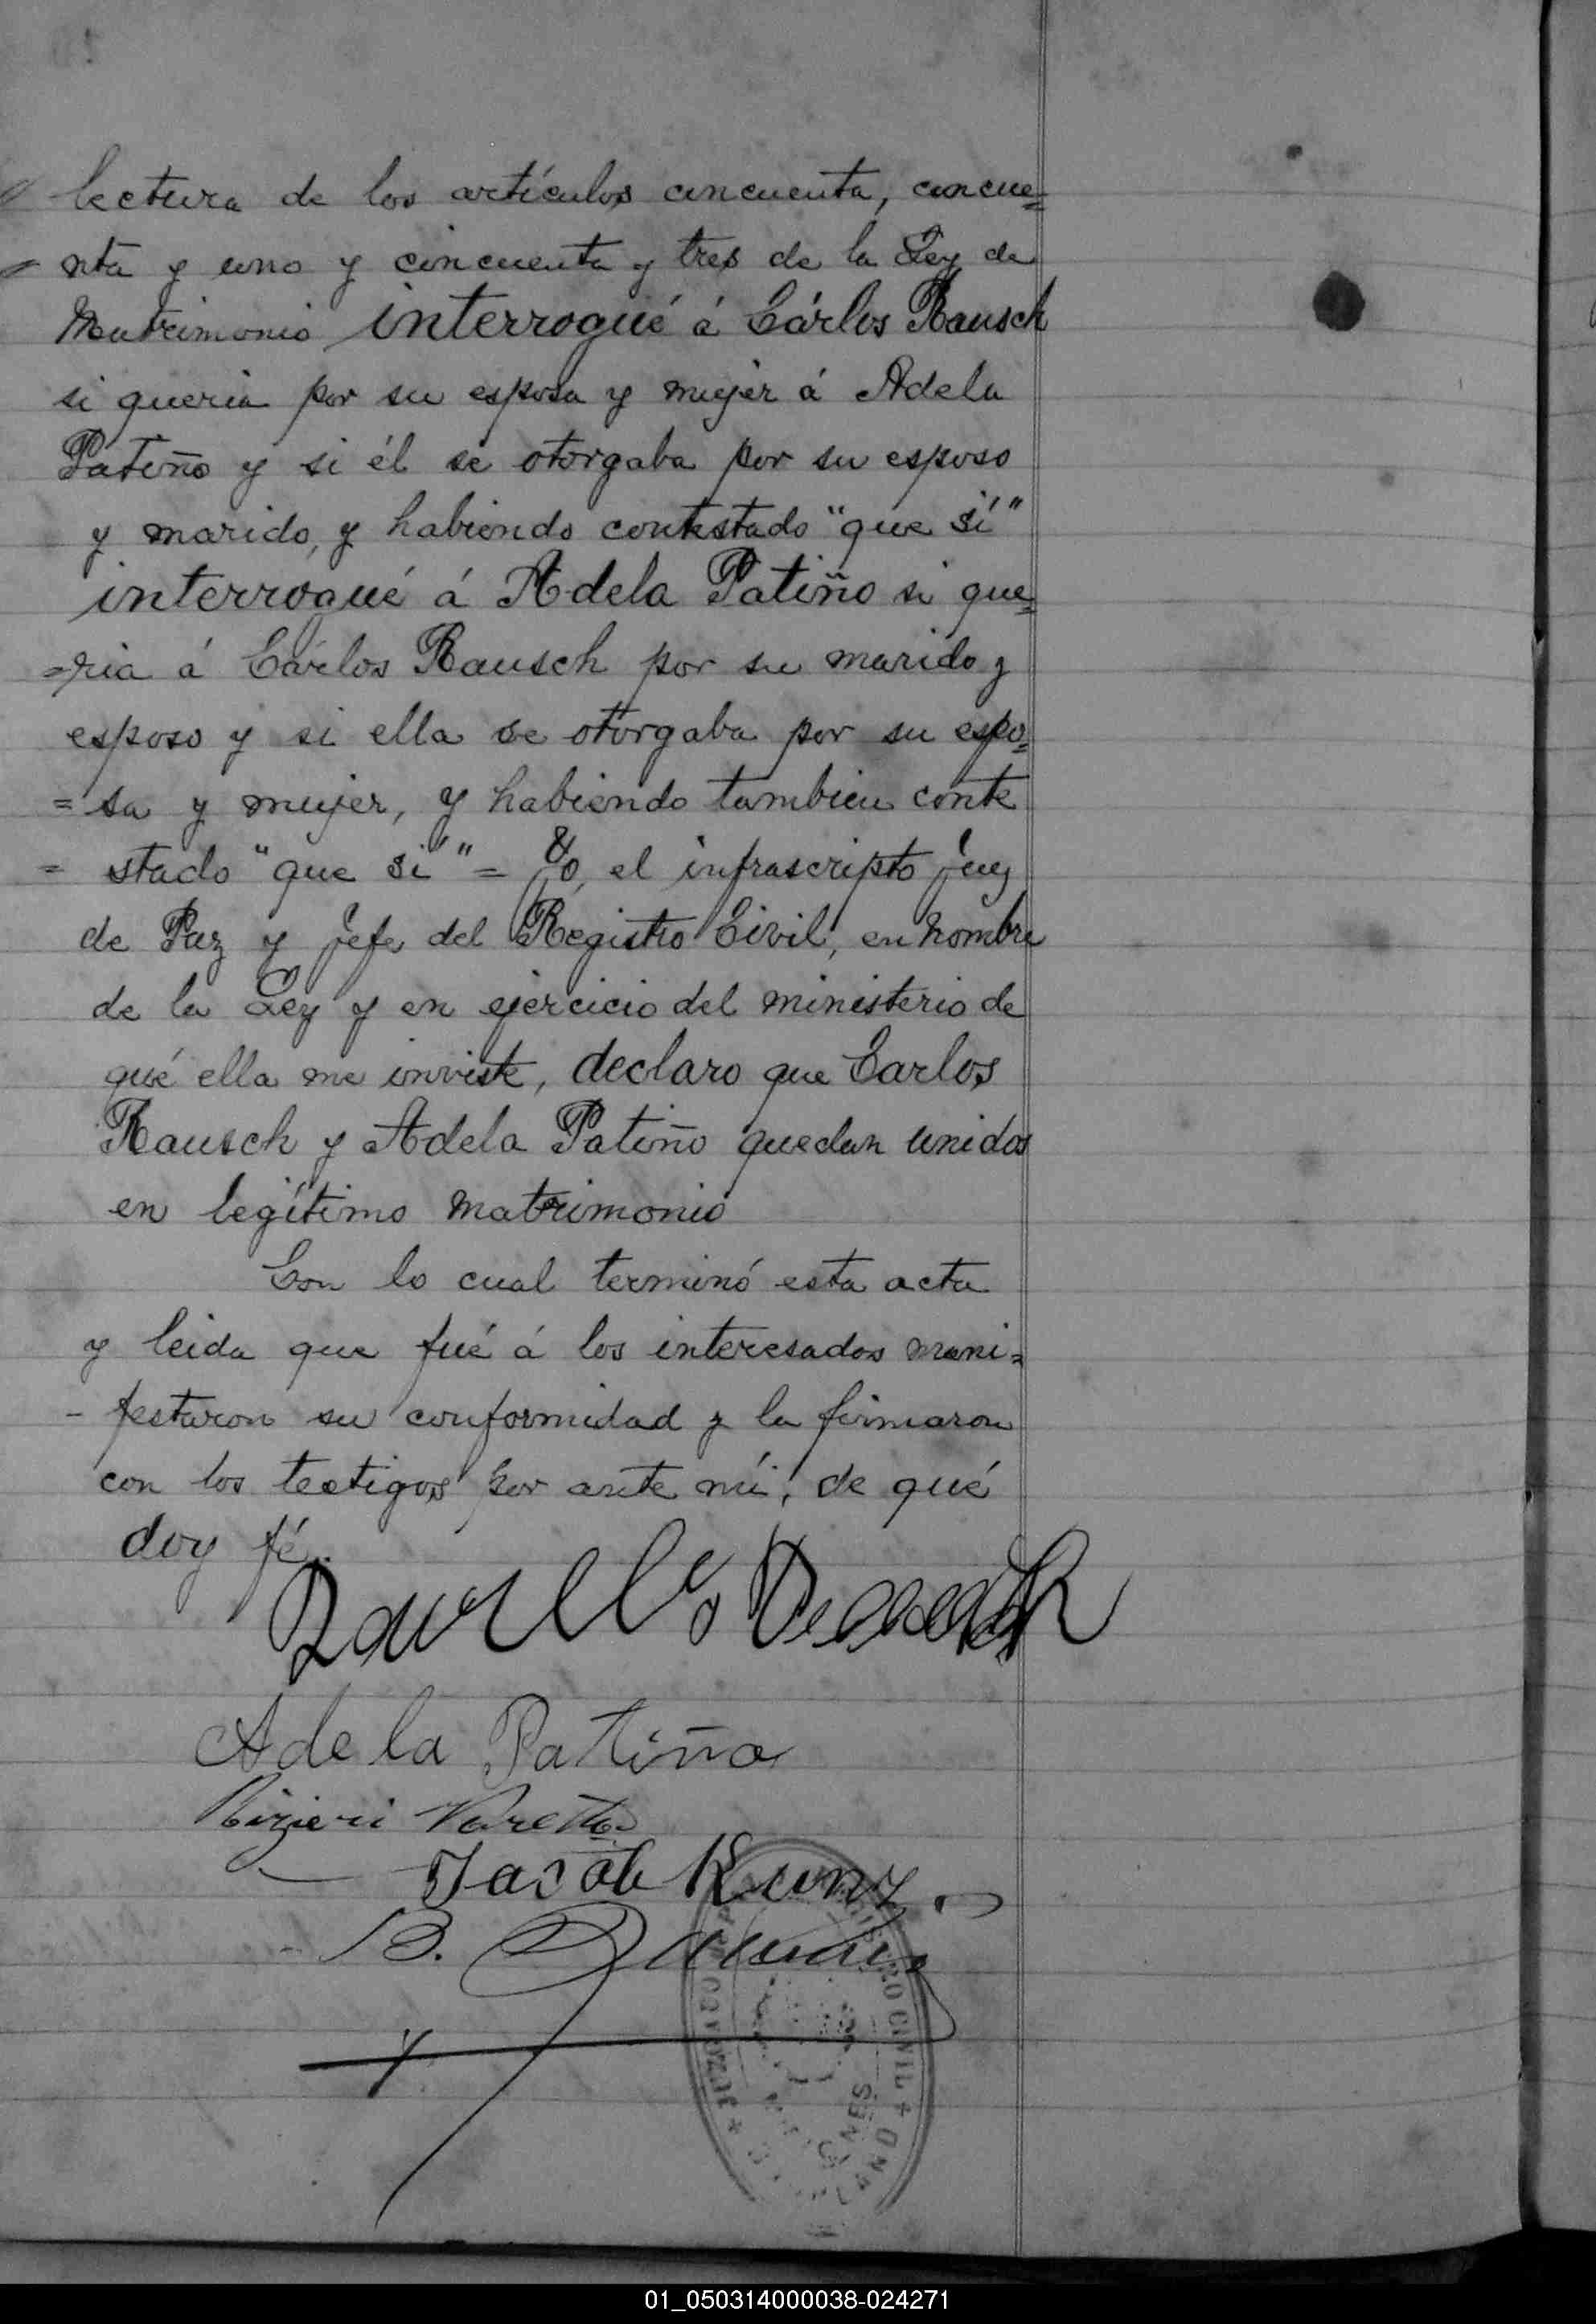 lectura de los artículos cincuenta, cincue=
nta y uno y cincuenta y tres de la Ley de
Matrimonio interrogué á Cárlos Rausch
si queria por su esposa y mujer á Adela
Patiño y si él se otorgaba por su esposo
y marido, y habiendo contestado "que si"
interrogué á Adela Patiño si que=
=ria á Cárlos Rausch por su marido y
esposo y si ella se otorgaba por su espo=
=sa y mujer, y habiendo tambien conte
= stado "que si" = Yo, el infrascripto Juez
de Paz y Jefe del Registro Civil, en nombre
de la Ley y en ejercicio del ministerio de
qué ella me inviste, declaro que Carlos
Rausch y Adela Patiño quedan unidos
en legítimo matrimonio
Con lo cual terminó esta acta
y leida que fué á los interesados mani=
- festaron su conformidad y la firmaron
con los testigos por ante mí, de qué
doy fé.
Adela Patiño
Jacob Kunz
B.
JUZGADO
CIVIL
01_050314000038-024271